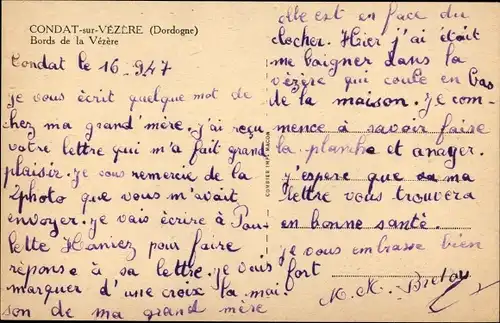 CONDAT-sur-VÉZÈRE (Dordogne)
Bords de la Vézère
Condat le 16-9 47
je vous écrit quelque mot de
chez ma grand'mère. j'ai reçu
votre lettre qui m'a fait grand
plaisir. je vous remercie de la
photo que vous m'avait
envoyer. je vais écrire à Pau-
lette Haniez pour faire
réponse à sa lettre. je vais
marquer d'une croix la mai-
son de ma grand mère
elle est en face du
clocher. Hier j'ai était
me baigner dans la
vézère qui coule en bas
de la maison. je com-
mence à savoir faire
la planche et anager.
j'espère que ma
lettre vous trouvera
en bonne santé.
je vous embrasse bien
fort
M. M. Bretou
COMBIER IMP. MACON